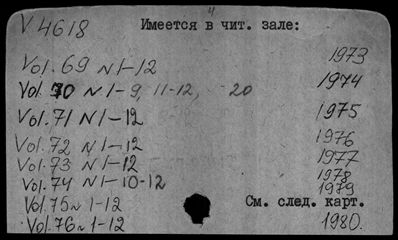 V 4618 Имеется в чит. зале:
Vol. 69 N 1-12 1973
Vol. 70 N 1-9, 11-12, 1974
Vol. 71 N 1-12 1975
Vol. 72 N 1-12 1976
Vol. 73 N 1-12 1977
Vol. 74 N 1-10-12 1978
Vol. 75 N 1-12 1979
См. след. карт.
Vol. 76 N 1-12 1980.